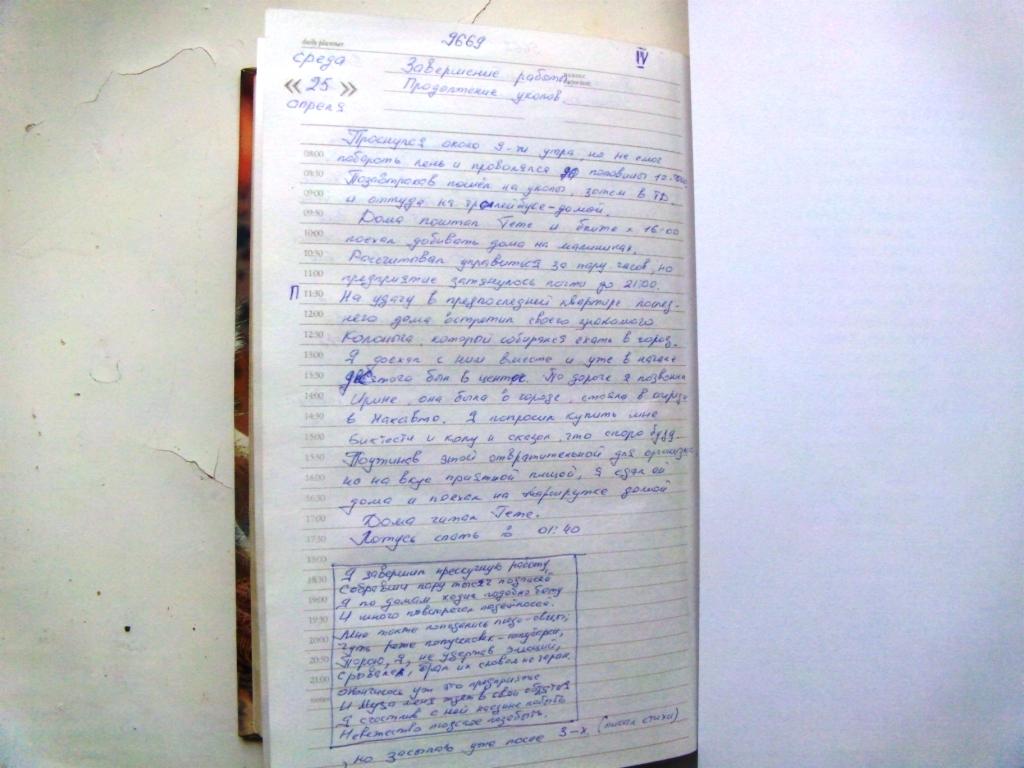 daily planner
9669
IV
среда
« 25 »
апреля
Завершение работы
Продолжение уколов.
Проснулся около 9-ти утра, но не смог
08:00
побороть лень и провалялся до половины 12-го.
08:30
Позавтракав пошёл на уколы, затем в ТД
09:00
и оттуда на троллейбусе-домой.
09:30
Дома почитал Гёте и к 16-00
10:00
поехал добивать дома на
10:30
Рассчитывал управиться за пару часов, но
11:00
предприятие затянулось почти до 21:00.
П 11:30
На удачу в предпоследней квартире послед-
12:00
него дома встретил своего знакомого
12:30
который собирался ехать в город.
13:00
Я доехал с ним вместе и уже в начале
13:30
девятого был в центре. По дороге я позвонил
14:00
Ирине, она была в городе, стояла в очереди
14:30
в Макавто. Я попросил купить мне
15:00
Биктести и колу и сказал, что скоро буду.
15:30
Поужинав этой отвратительной для организма
16:00
но на вкус приятной пищей, я сдал ей
16:30
дома и поехал на маршрутке домой
17:00
Дома читал Гёте.
17:30
Ложусь спать в 01:40
18:00
Я завершил прескучную работу,
18:30
Собравши пару тысяч подписей
19:00
Я по домам ходил подобно
И много повстречал
19:30
Мне также попадались
20:00
Чуть реже
20:30
Порою, я, не удержав эмоций,
21:00
Срывался,
Окончилось уж это предприятие
И Муза меня ждёт в свои объятия
Я счастлив с ней наедине побыть
Невежество людское позабыть.
, но засыпаю уже после 3-х (писал стихи)